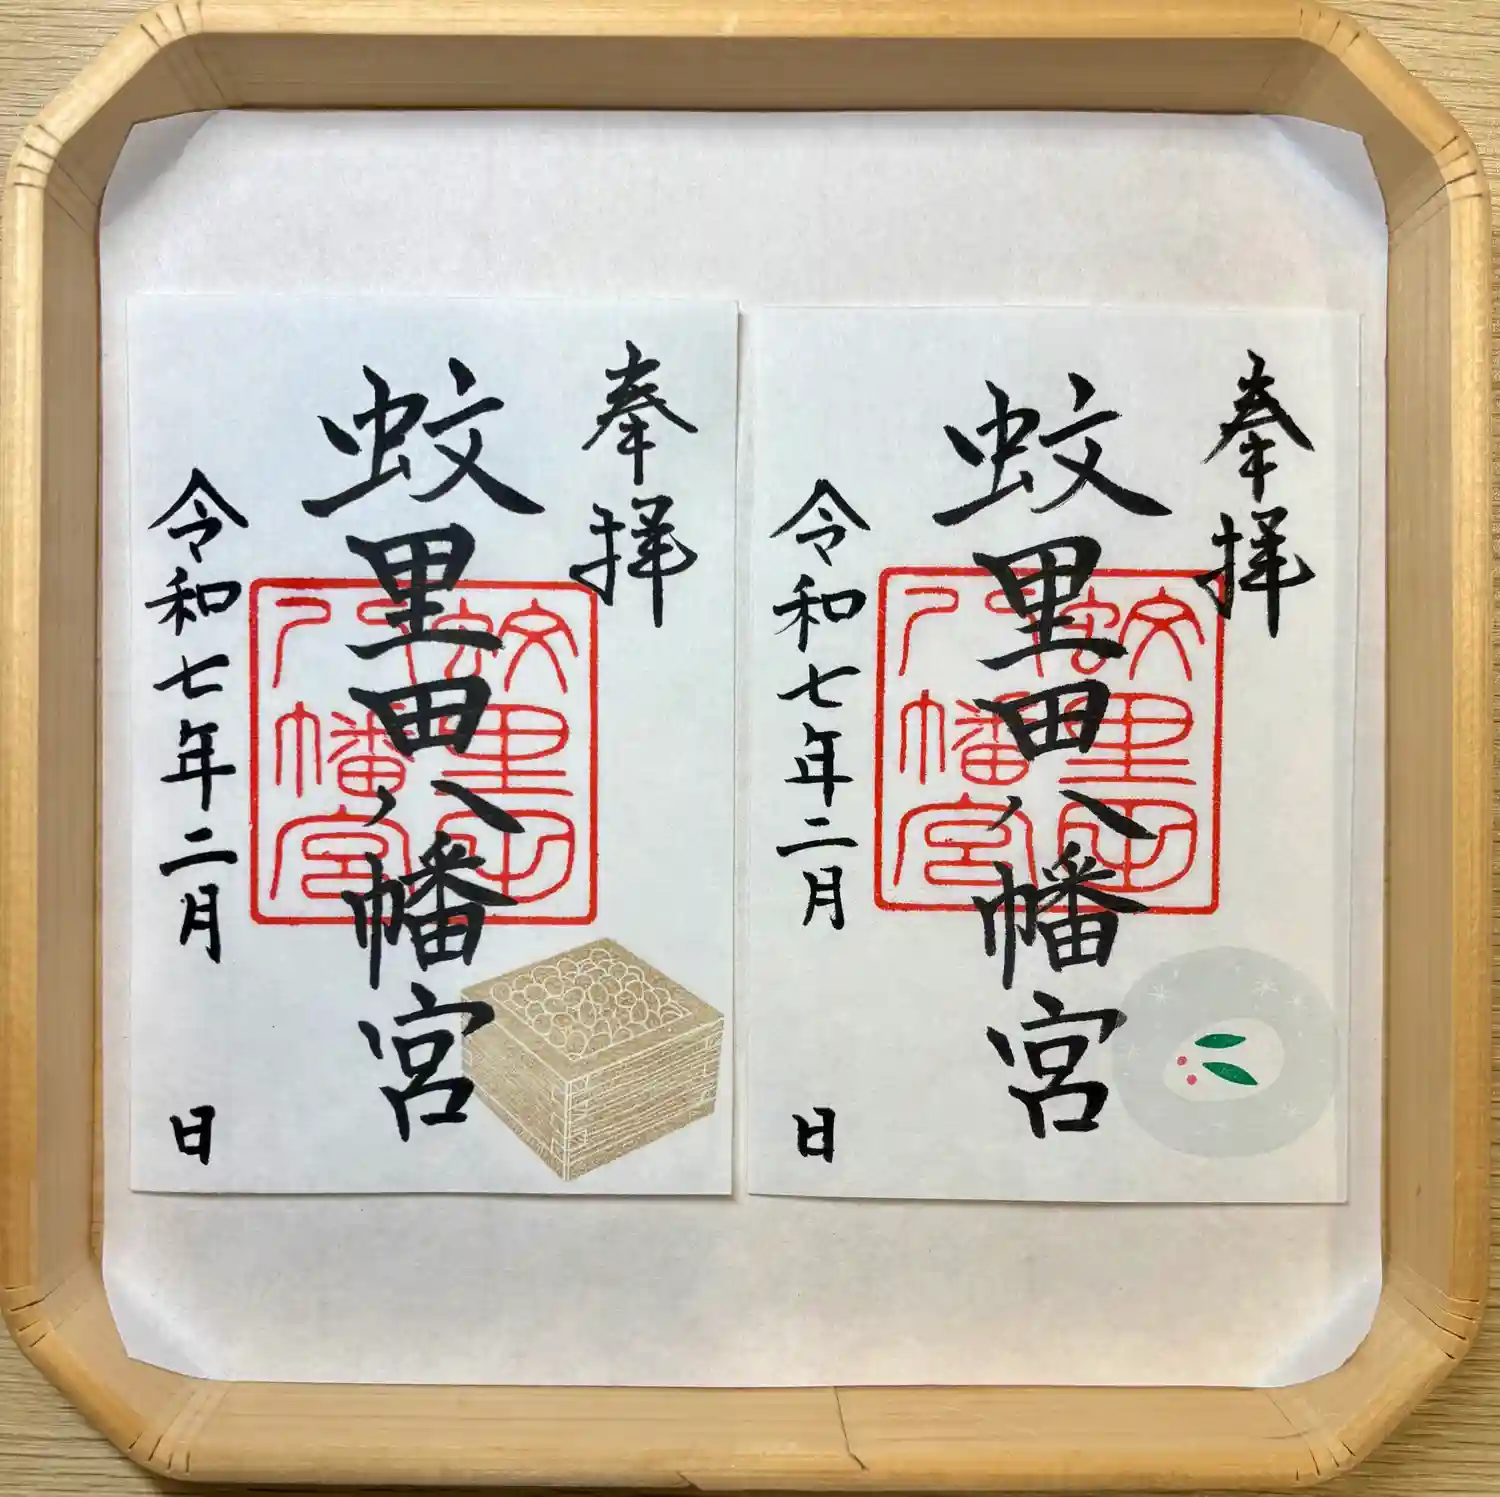 奉拝
蚊里田八幡宮
蚊里田八幡宮
令和七年二月 日
奉拝
蚊里田八幡宮
蚊里田八幡宮
令和七年二月 日